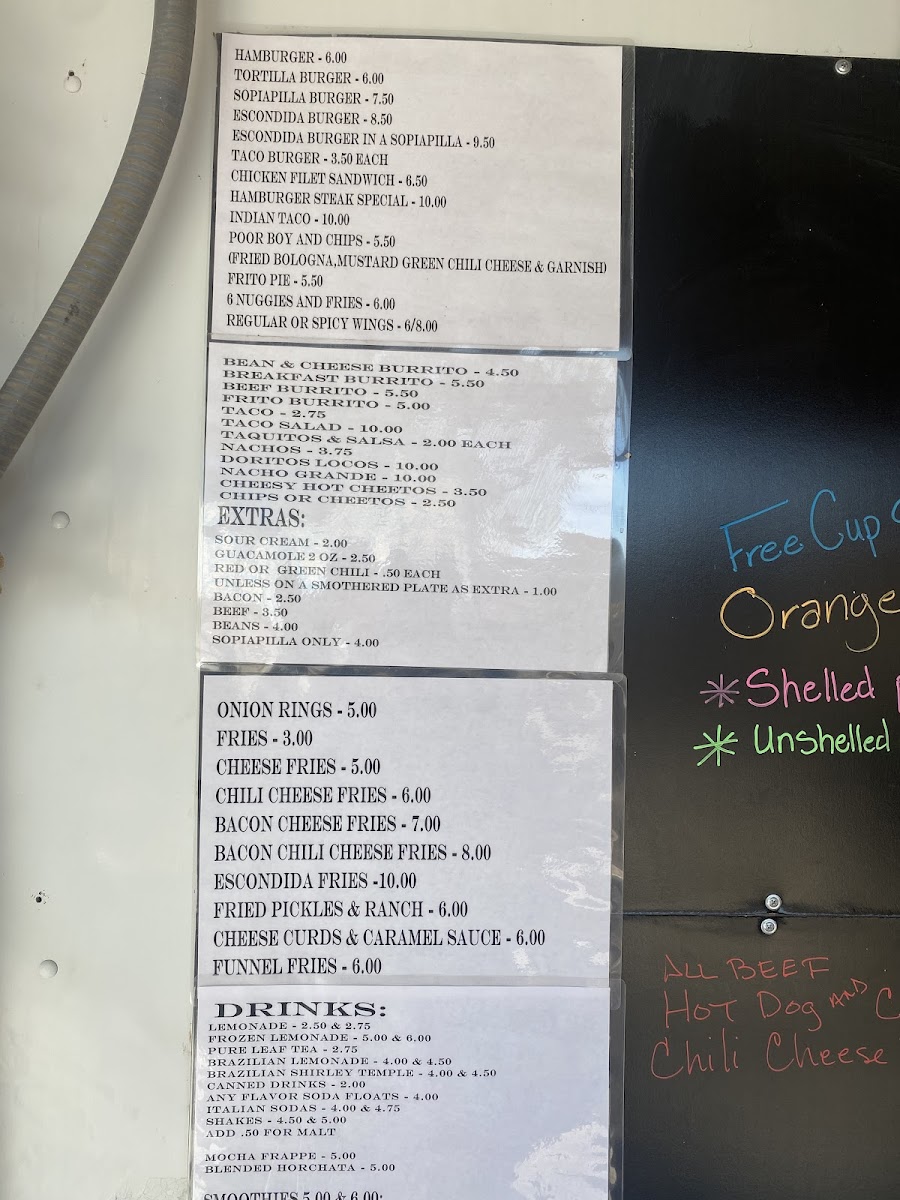 HAMBURGER - 6.00
TORTILLA BURGER - 6.00
SOPIAPILLA BURGER - 7.50
ESCONDIDA BURGER - 8.50
ESCONDIDA BURGER IN A SOPIAPILLA - 9.50
TACO BURGER - 3.50 EACH
CHICKEN FILET SANDWICH - 6.50
HAMBURGER STEAK SPECIAL - 10.00
INDIAN TACO - 10.00
POOR BOY AND CHIPS - 5.50
(FRIED BOLOGNA,MUSTARD GREEN CHILI CHEESE & GARNISH)
FRITO PIE - 5.50
6 NUGGIES AND FRIES - 6.00
REGULAR OR SPICY WINGS - 6/8.00
BEAN & CHEESE BURRITO - 4.50
BREAKFAST BURRITO - 5.50
BEEF BURRITO - 5.50
FRITO BURRITO - 5.00
TACO - 2.75
TACO SALAD - 10.00
TAQUITOS & SALSA - 2.00 EACH
NACHOS - 3.75
DORITOS LOCOS - 10.00
NACHO GRANDE - 10.00
CHEESY HOT CHEETOS - 3.50
CHIPS OR CHEETOS - 2.50
EXTRAS:
SOUR CREAM - 2.00
GUACAMOLE 2 OZ - 2.50
RED OR GREEN CHILI - .50 EACH
UNLESS ON A SMOTHERED PLATE AS EXTRA - 1.00
BACON - 2.50
BEEF - 3.50
BEANS - 4.00
SOPIAPILLA ONLY - 4.00
ONION RINGS - 5.00
FRIES - 3.00
CHEESE FRIES - 5.00
CHILI CHEESE FRIES - 6.00
BACON CHEESE FRIES - 7.00
BACON CHILI CHEESE FRIES - 8.00
ESCONDIDA FRIES -10.00
FRIED PICKLES & RANCH - 6.00
CHEESE CURDS & CARAMEL SAUCE - 6.00
FUNNEL FRIES - 6.00
DRINKS:
LEMONADE - 2.50 & 2.75
FROZEN LEMONADE - 5.00 & 6.00
PURE LEAF TEA - 2.75
BRAZILIAN LEMONADE - 4.00 & 4.50
BRAZILIAN SHIRLEY TEMPLE - 4.00 & 4.50
CANNED DRINKS - 2.00
ANY FLAVOR SODA FLOATS - 4.00
ITALIAN SODAS - 4.00 & 4.75
SHAKES - 4.50 & 5.00
ADD .50 FOR MALT
MOCHA FRAPPE - 5.00
BLENDED HORCHATA - 5.00
SMOOTHIES 5.00 & 6.00:
Free Cup
Orange
* Shelled
* Unshelled
ALL BEEF
HOT DOG AND
Chili Cheese